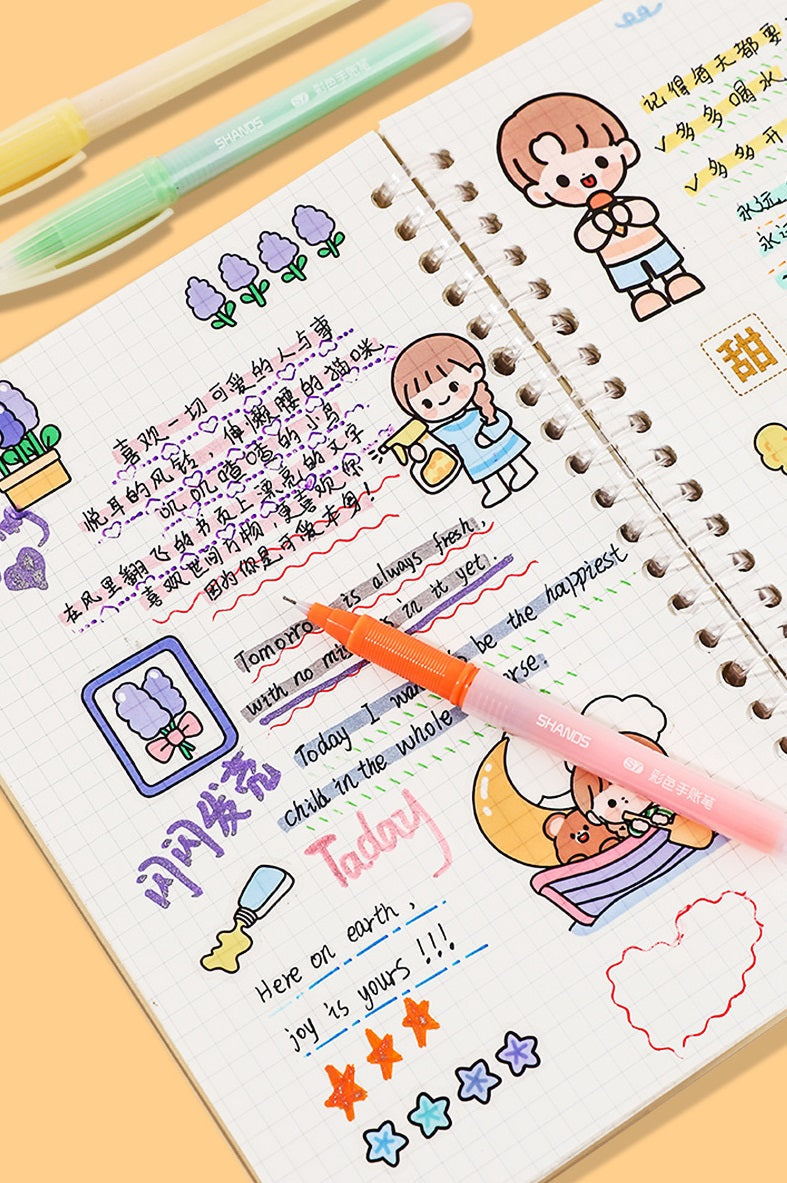 SHANDS S7 彩色手账笔
记得每天都要
✓多多喝水
✓多多开
永远
永远
甜
喜欢一切可爱的人与事
悦耳的风铃，伸懒腰的猫咪，
叽叽喳喳的小鸟
在风里翻飞的书页上漂亮的文字
喜欢世间万物，更喜欢你
因为你是可爱本身！
Tomorro is always fresh,
with no mis s in it yet.
Today I wan be the happiest
child in the whole erse.
SHANDS S7 彩色手账笔
闪闪发亮
Taday
Here on earth,
joy is yours !!!